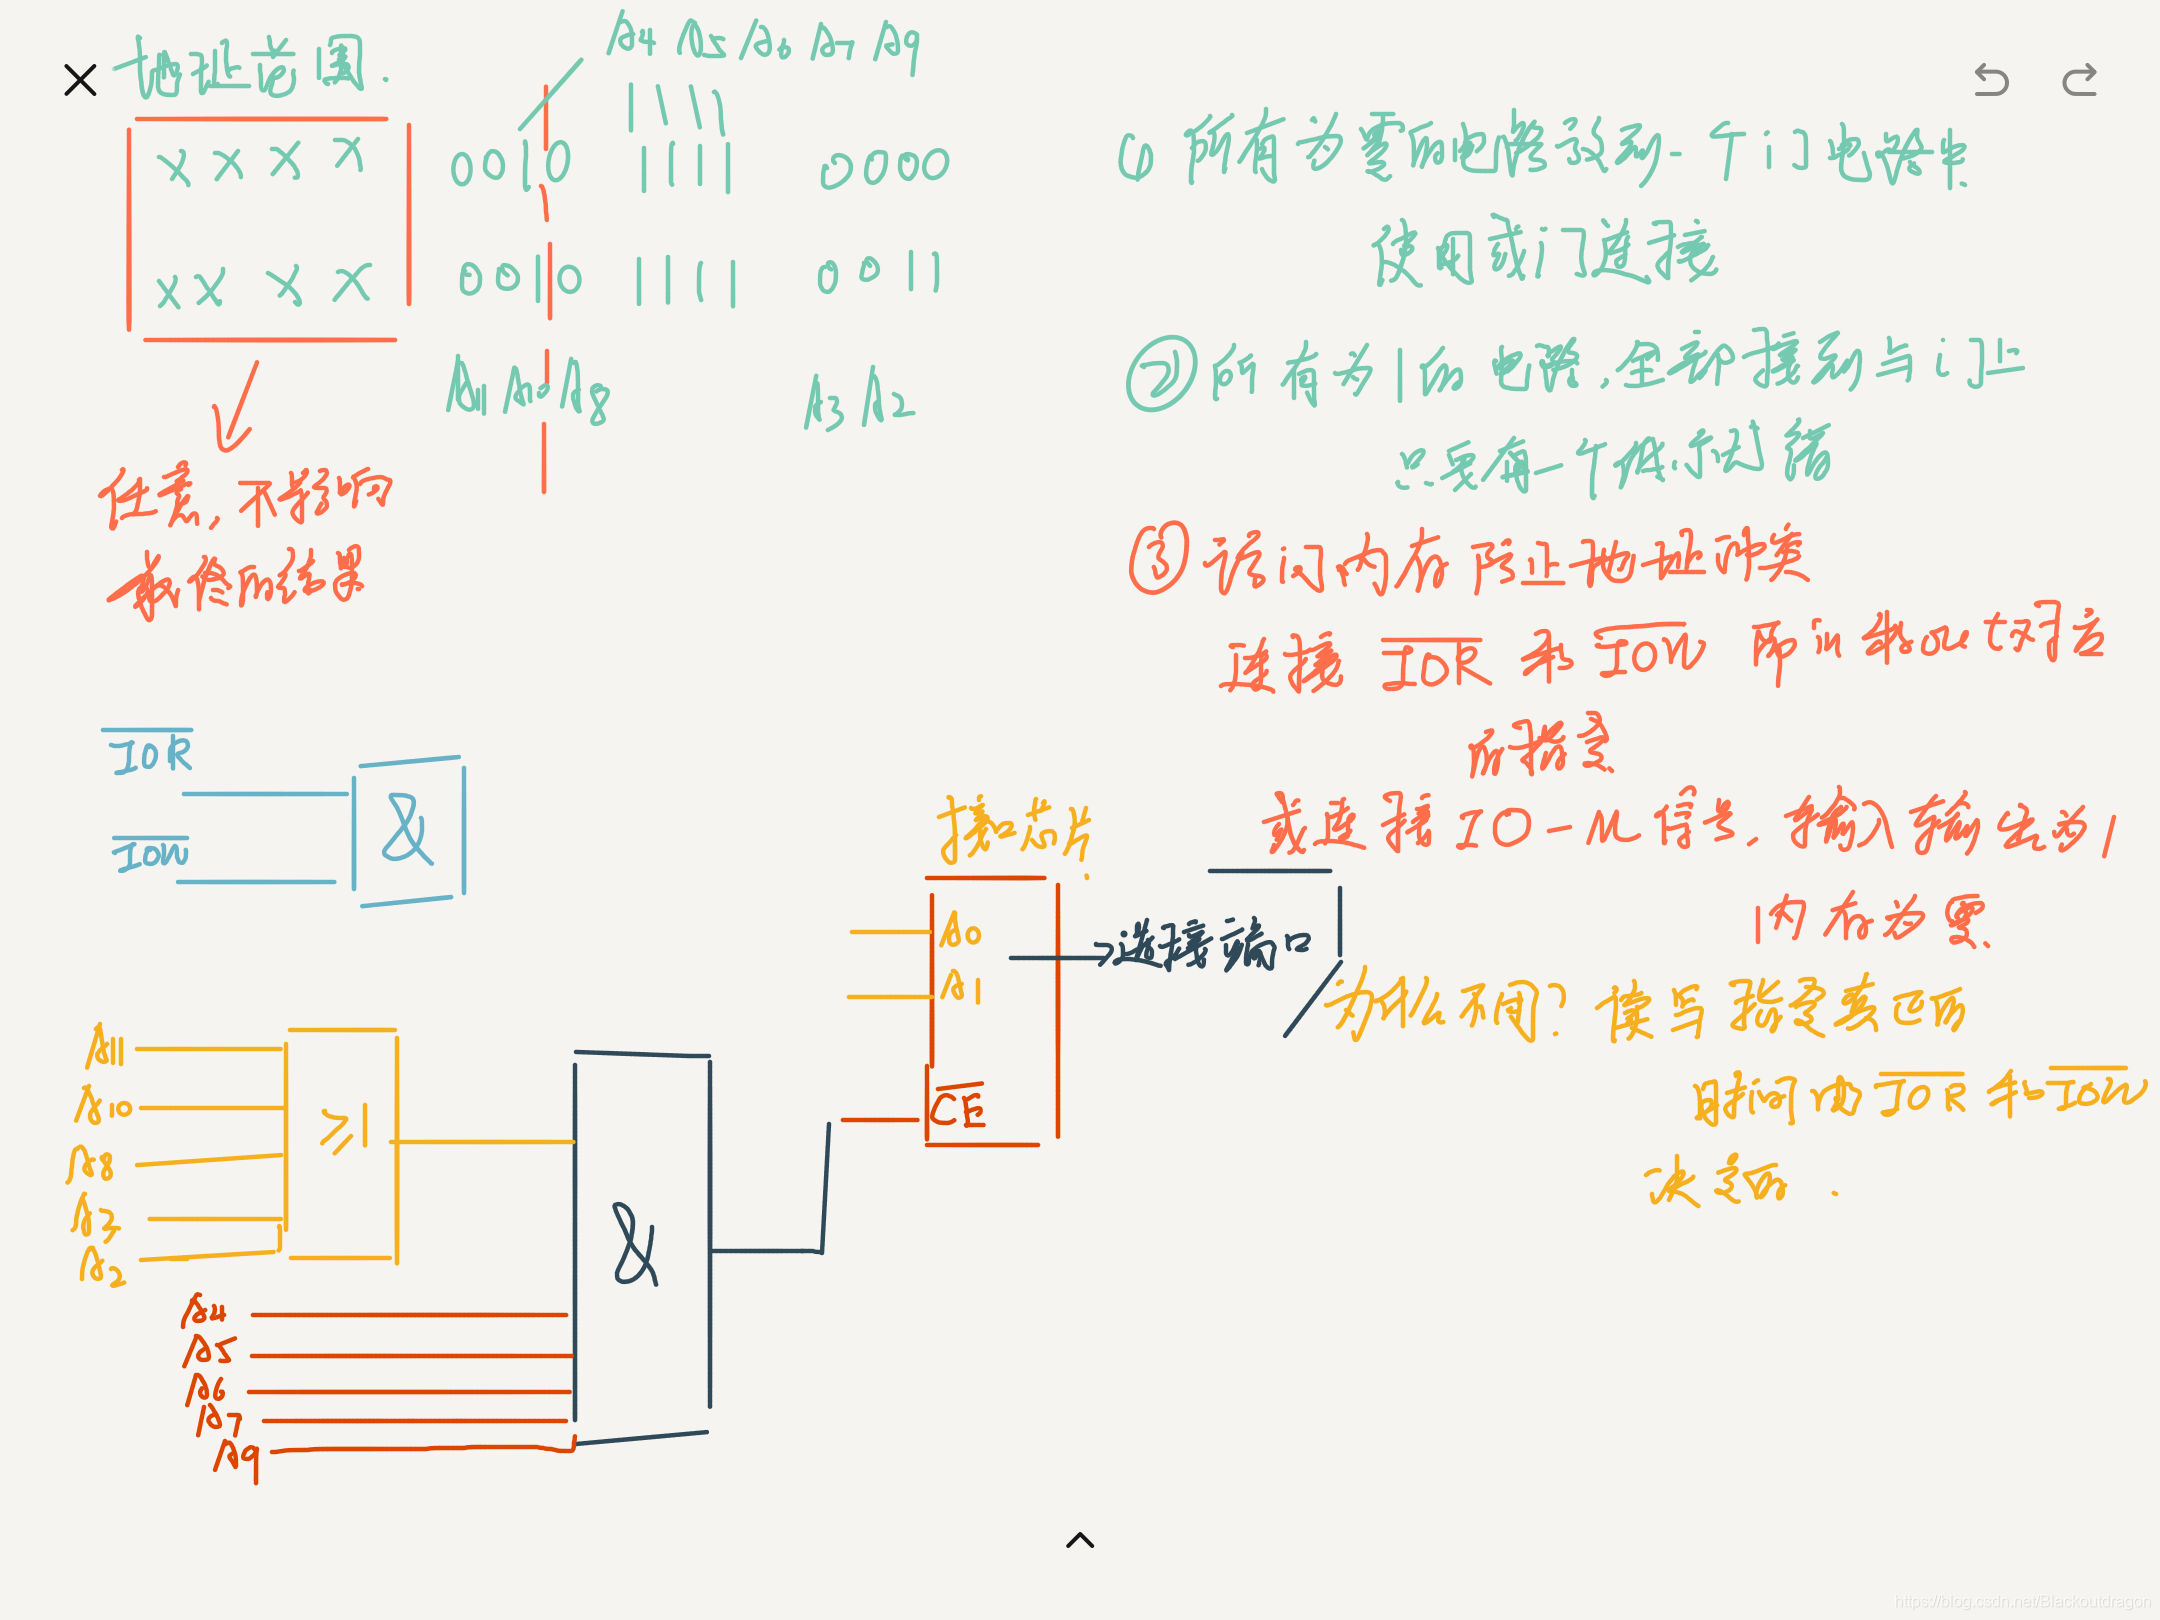 地址范围.
A4 A5 A6 A7 A9
1111
XXXX 0010 1111 0000
XXXX 0010 1111 0011
A11 A10 A8 A3 A2
任意,不影响
最终的结果
① 所有为零的电路放到一个门电路中.
使用或门连接
② 所有为1的电路,全部接到与门上
只要有一个低.
③ 访问内存 防止地址冲突
连接 IOR 和 IOW 即 in 和 out 对应
的指令
或连接 IO-M 信号, 输入输出为1
内存为零.
为什么不用?
时间由 IOR 和 IOW
决定的.
IOR
IOW
&
接口芯片
A0
A1
CE
选择端口
A11
A10
A8
A3
A2
≥1
&
A4
A5
A6
A7
A9
https://blog.csdn.net/Blackoutdragon